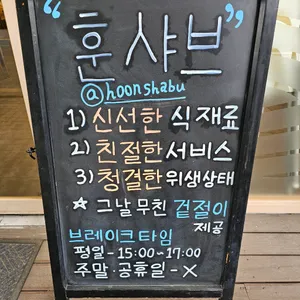 “훈 샤브”
@hoonshabu
1) 신선한 식재료
2) 친절한 서비스
3) 청결한 위생상태
☆ 그날 무친 겉절이
제공
브레이크 타임
평일 - 15:00~17:00
주말·공휴일 - X